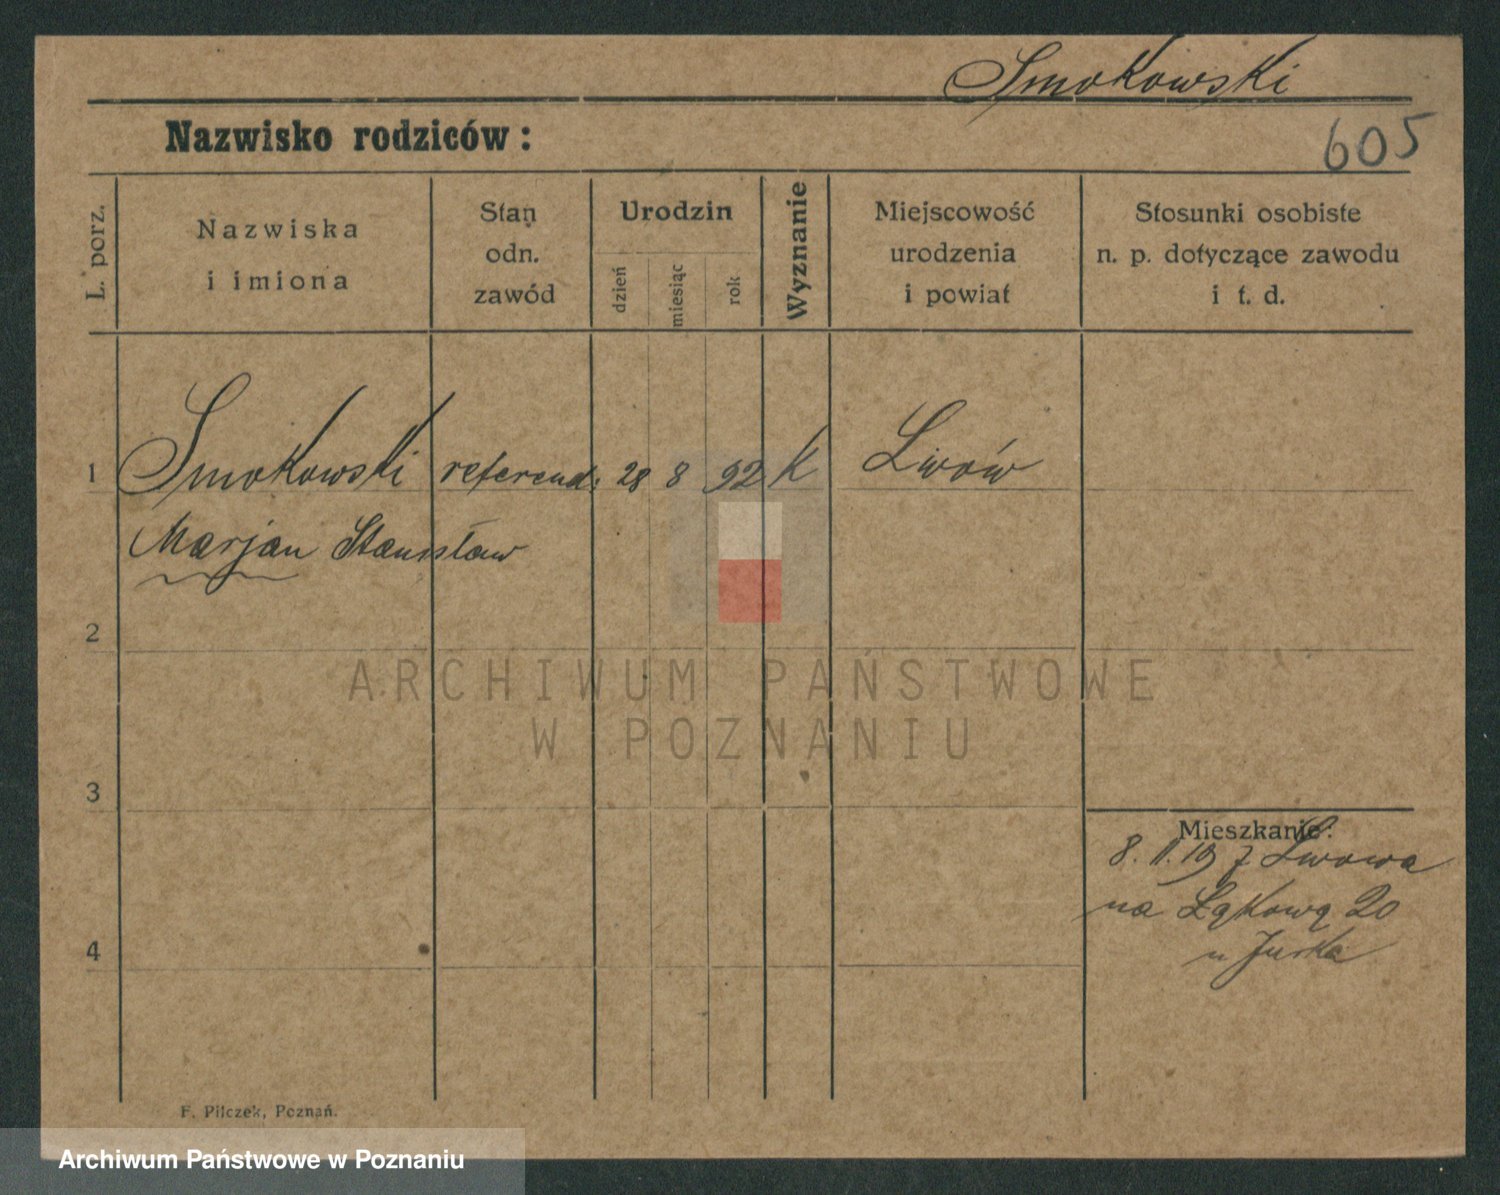 Smokowski
605
Nazwisko rodziców:
L. porz.
Nazwiska
i imiona
Stan
odn.
zawód
Urodzin
dzień
miesiąc
rok
Wyznanie
Miejscowość
urodzenia
i powiat
Stosunki osobiste
n. p. dotyczące zawodu
i t. d.
1 Smokowski referend: 28 8 92 K Lwów
Marjan Stanisław
2
ARCHIWUM PAŃSTWOWE
W POZNANIU
3
Mieszkanie:
8. II. 19 z Lwowa
na Łąkową 20
u Jurka
4
F. Pilczek, Poznań.
Archiwum Państwowe w Poznaniu